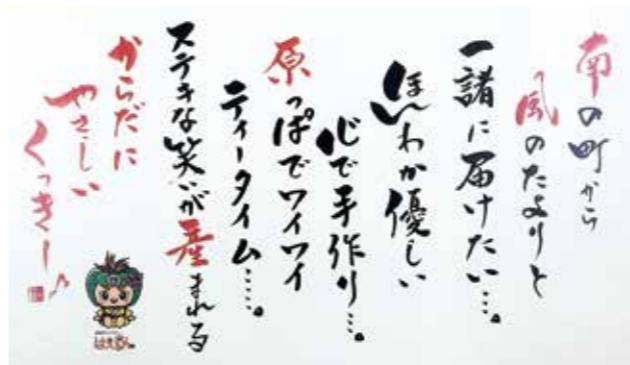 南の町から
風のたよりと
一諸に届けたい…。
ほんわか優しい
心で手作り…。
原っぱでワイワイ
ティータイム…。
ステキな笑いが産まれる
からだに
やさしい
くっきー♪